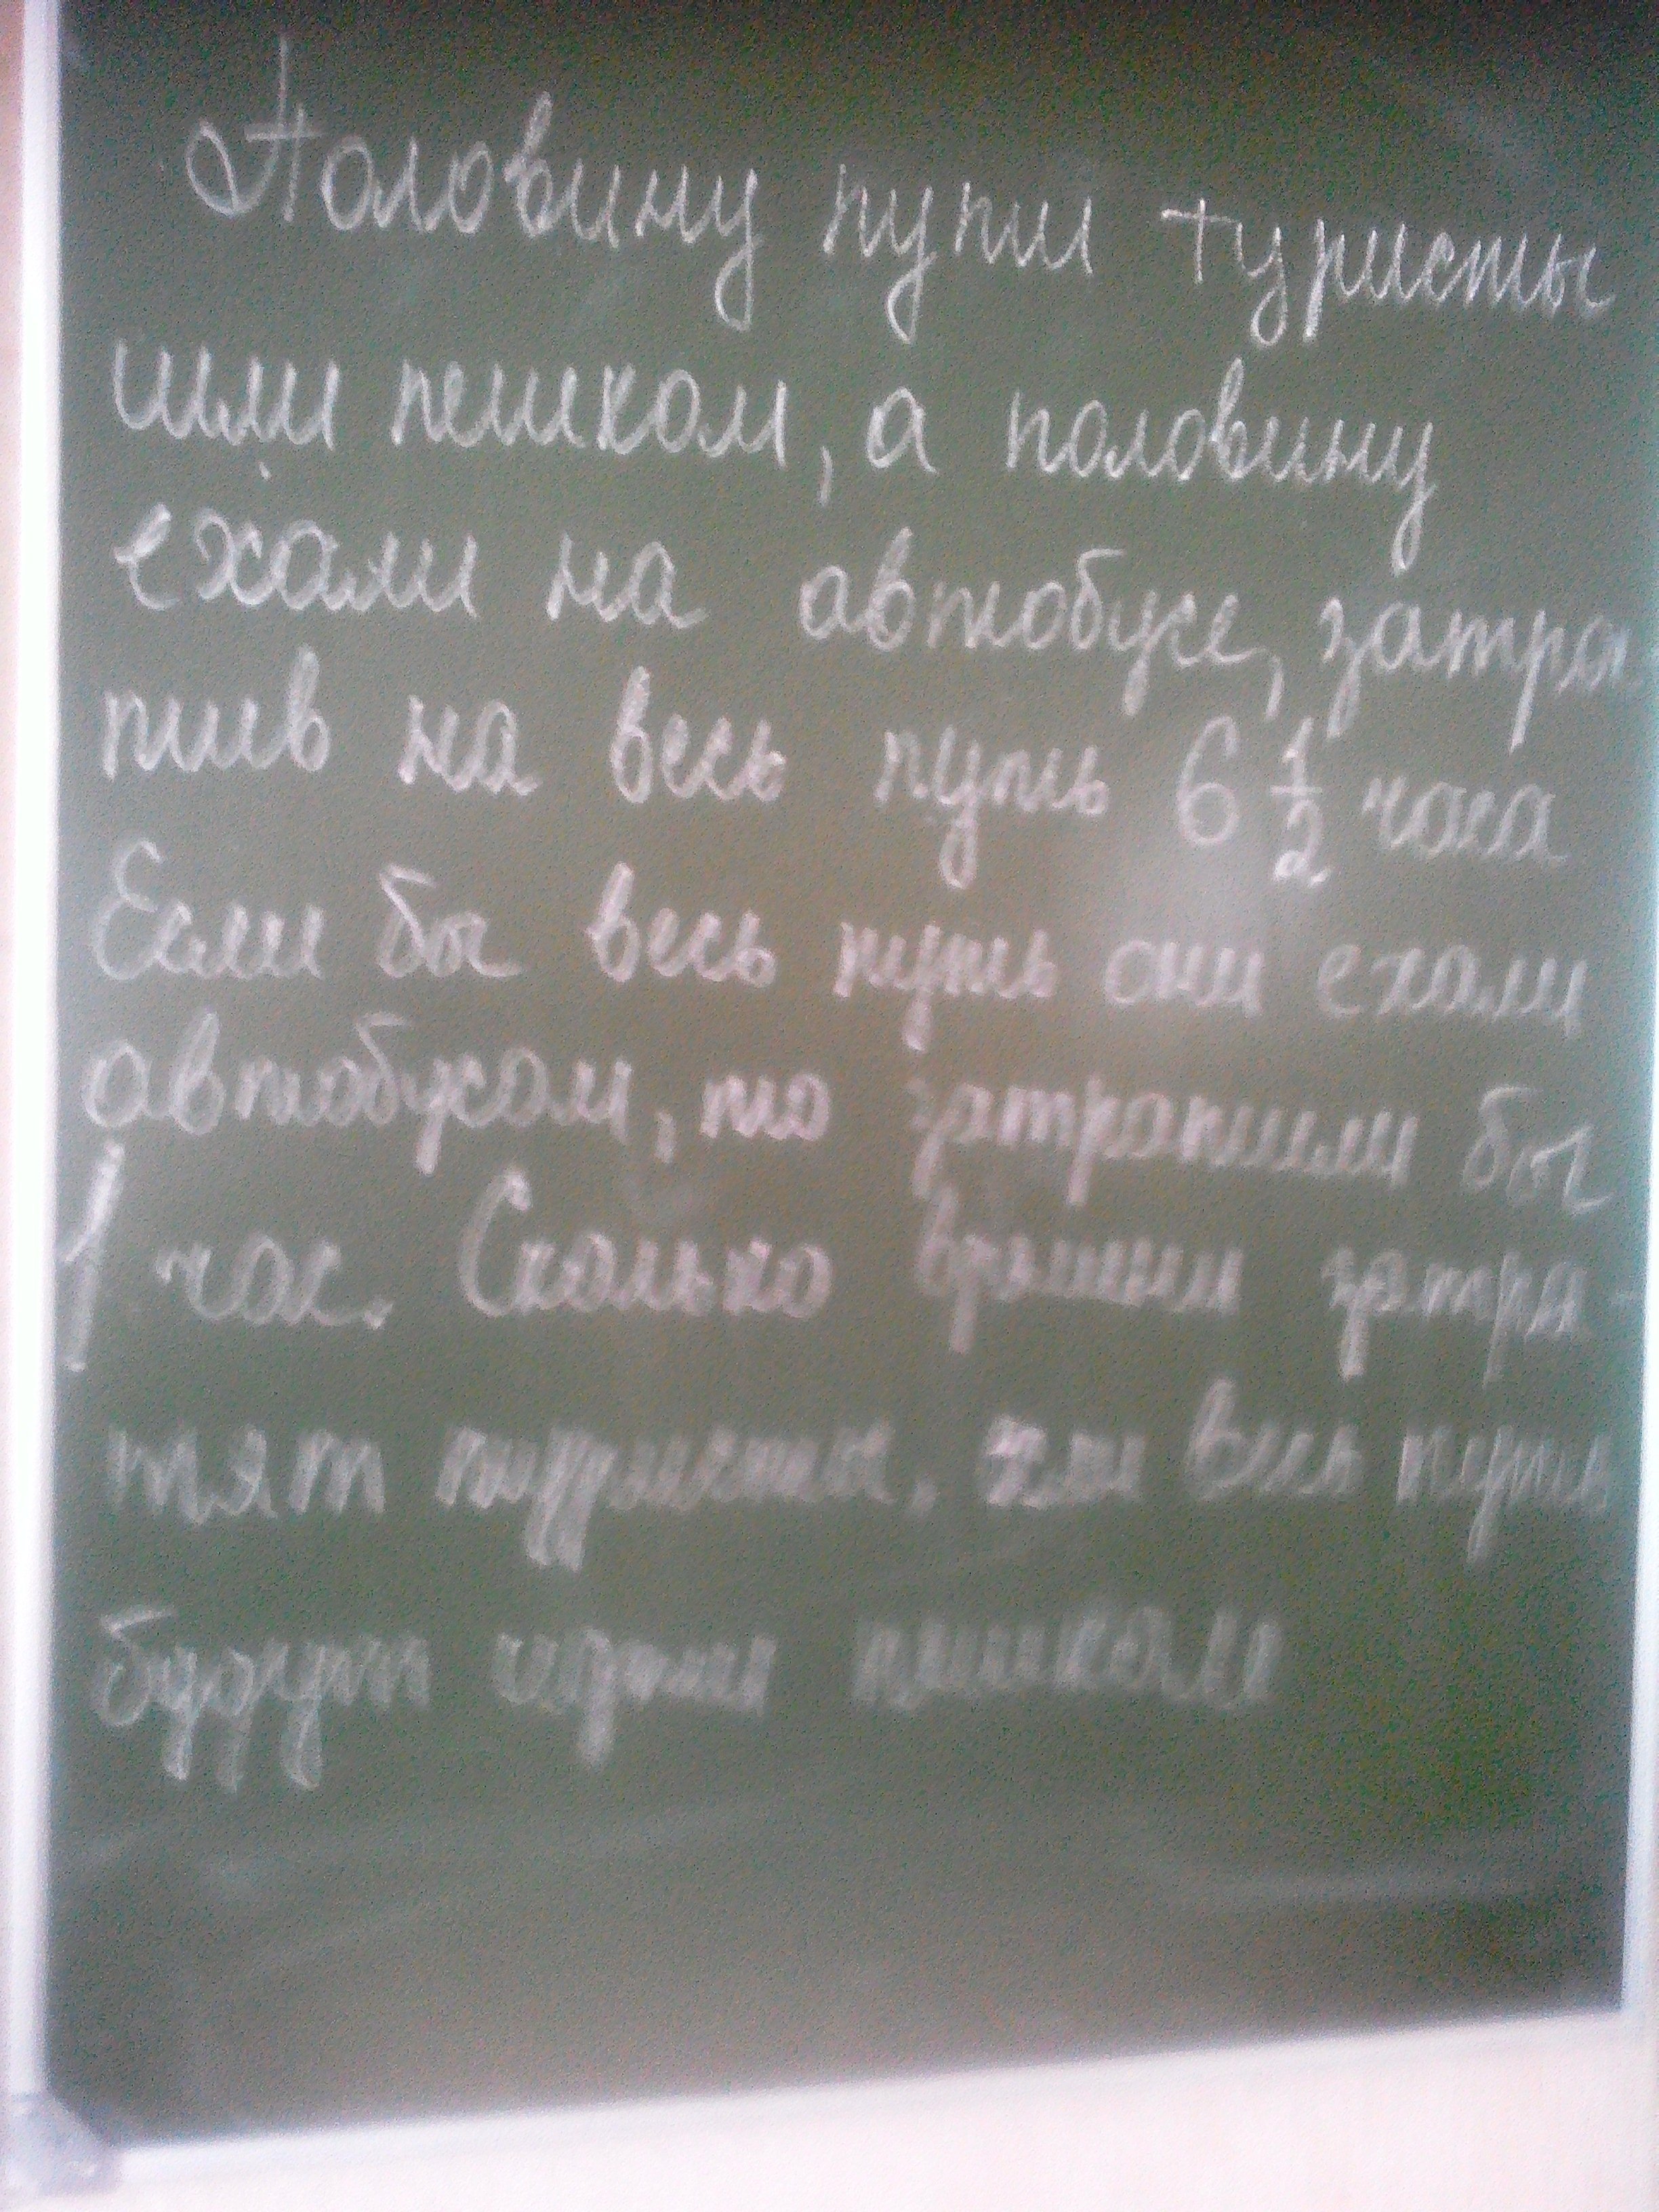 Половину пути туристы
шли пешком, а половину
ехали на автобусе, затра
тив на весь путь 6 1/2 часа
Если бы весь путь они ехали
автобусом, то затратили бы
1 час. Сколько времени затра-
тят туристы, если весь путь
будут идти пешком